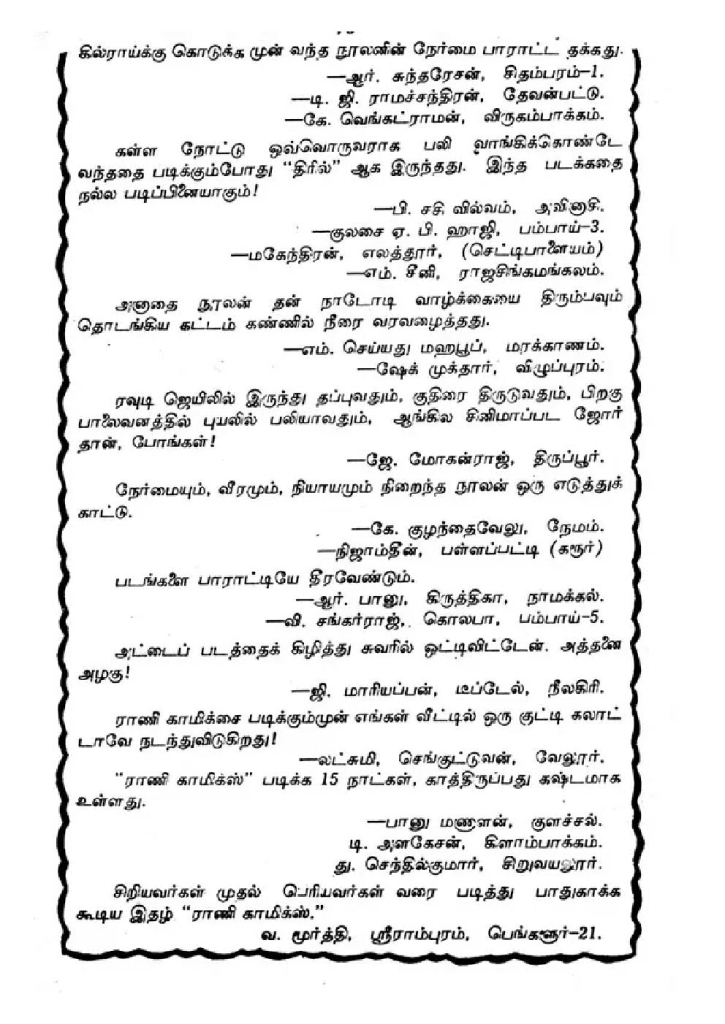 கில்ராய்க்கு கொடுக்க முன் வந்த நூலனின் நேர்மை பாராட்ட தக்கது.
—ஆர். சுந்தரேசன், சிதம்பரம்-1.
—டி. ஜி. ராமச்சந்திரன், தேவன்பட்டு.
—கே. வெங்கட்ராமன், விருகம்பாக்கம்.
கள்ள நோட்டு ஒவ்வொருவராக பலி வாங்கிக்கொண்டே
வந்ததை படிக்கும்போது “திரில்” ஆக இருந்தது. இந்த படக்கதை
நல்ல படிப்பினையாகும்!
—பி. சசி வில்வம், அவினாசி.
—குலசை ஏ. பி. ஹாஜி, பம்பாய்-3.
—மகேந்திரன், எலத்தூர், (செட்டிபாளையம்)
—எம். சீனி, ராஜசிங்கமங்கலம்.
அனாதை நூலன் தன் நாடோடி வாழ்க்கையை திரும்பவும்
தொடங்கிய கட்டம் கண்ணில் நீரை வரவழைத்தது.
—எம். செய்யது மஹபூப், மரக்காணம்.
—ஷேக் முக்தார், விழுப்புரம்.
ரவுடி ஜெயிலில் இருந்து தப்புவதும், குதிரை திருடுவதும், பிறகு
பாலைவனத்தில் புயலில் பலியாவதும், ஆங்கில சினிமாப்பட ஜோர்
தான், போங்கள்!
—ஜே. மோகன்ராஜ், திருப்பூர்.
நேர்மையும், வீரமும், நியாயமும் நிறைந்த நூலன் ஒரு எடுத்துக்
காட்டு.
—கே. குழந்தைவேலு, நேமம்.
—நிஜாம்தீன், பள்ளப்பட்டி (கரூர்)
படங்களை பாராட்டியே தீரவேண்டும்.
—ஆர். பானு, கிருத்திகா, நாமக்கல்.
—வி. சங்கர்ராஜ், கொலபா, பம்பாய்-5.
அட்டைப் படத்தைக் கிழித்து சுவரில் ஒட்டிவிட்டேன். அத்தனை
அழகு!
—ஜி. மாரியப்பன், டீப்டேல், நீலகிரி.
ராணி காமிக்சை படிக்குமுன் எங்கள் வீட்டில் ஒரு குட்டி கலாட்
டாவே நடந்துவிடுகிறது!
—லட்சுமி, செங்குட்டுவன், வேலூர்.
“ராணி காமிக்ஸ்” படிக்க 15 நாட்கள், காத்திருப்பது கஷ்டமாக
உள்ளது.
—பானு மணாளன், குளச்சல்.
டி. அளகேசன், கிளாம்பாக்கம்.
து. செந்தில்குமார், சிறுவயலூர்.
சிறியவர்கள் முதல் பெரியவர்கள் வரை படித்து பாதுகாக்க
கூடிய இதழ் “ராணி காமிக்ஸ்.”
வ. மூர்த்தி, ஸ்ரீராம்புரம், பெங்களூர்-21.